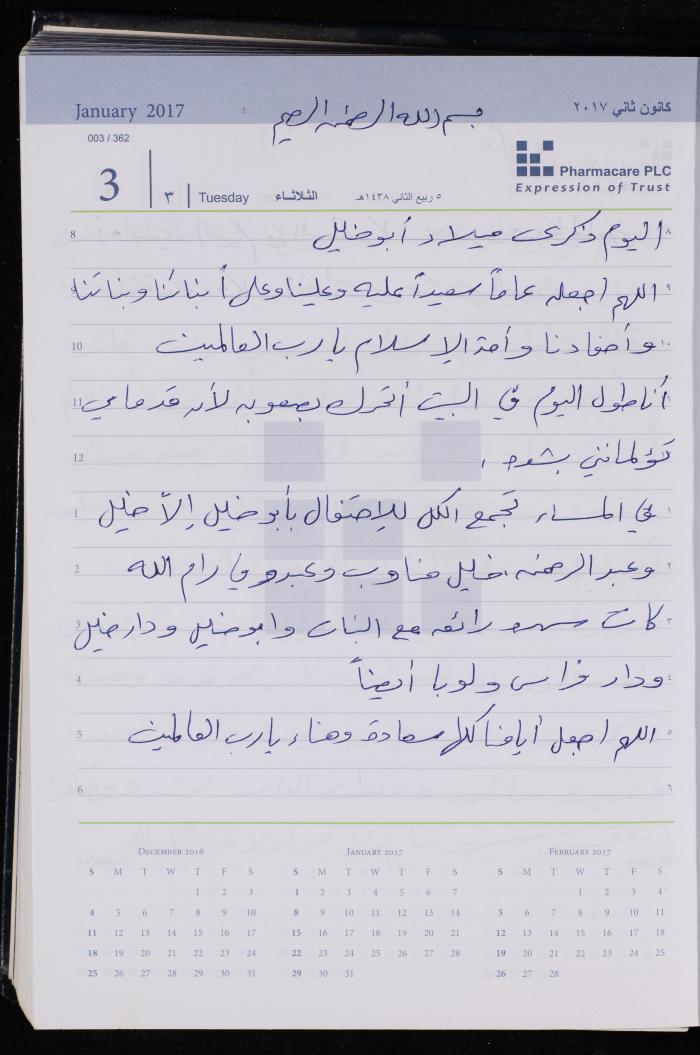 January 2017
بسم الله الرحمن الرحيم
كانون ثاني ٢٠١٧
003 / 362
3
٣
Tuesday
الثلاثاء
٥ ربيع الثاني ١٤٣٨هـ
Pharmacare PLC
Expression of Trust
8 اليوم ذكرى ميلاد أبو خليل ٨
9 اللهم اجعله عاماً سعيداً عليه وعلينا وعلى أبنائنا وبناتنا ٩
10 وأحفادنا وأمة الإسلام يا رب العالمين ١٠
11 أنا طول اليوم في البيت أتحرك بصعوبه لأن قدماي ١١
12 تؤلمانني بشده .
1 في المساء تجمع الكل للإحتفال بأبو خليل إلاّ خليل ١
2 وعبد الرحمن . خليل مناوب وعبدو في رام الله ٢
3 كانت سهره رائعه مع البنات وابو خليل ودار خليل ٣
4 ودار فراس ولوبا أيضاً ٤
5 اللهم اجعل أيامنا كلها سعادة وهناء يا رب العالمين ٥
6 ٦
December 2016
S M T W T F S
1 2 3
4 5 6 7 8 9 10
11 12 13 14 15 16 17
18 19 20 21 22 23 24
25 26 27 28 29 30 31
January 2017
S M T W T F S
1 2 3 4 5 6 7
8 9 10 11 12 13 14
15 16 17 18 19 20 21
22 23 24 25 26 27 28
29 30 31
February 2017
S M T W T F S
1 2 3 4
5 6 7 8 9 10 11
12 13 14 15 16 17 18
19 20 21 22 23 24 25
26 27 28